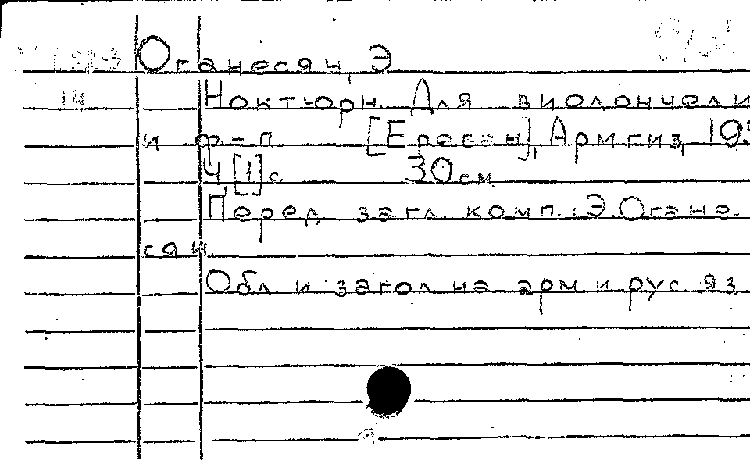 Оганесян, Э
14 Ноктюрн. Для виолончели
и ф-п. [Ереван], Армгиз, 195
4 [1] с 30 см
Перед загл. комп.: Э. Огане-
сян
Обл и загол на арм и рус яз